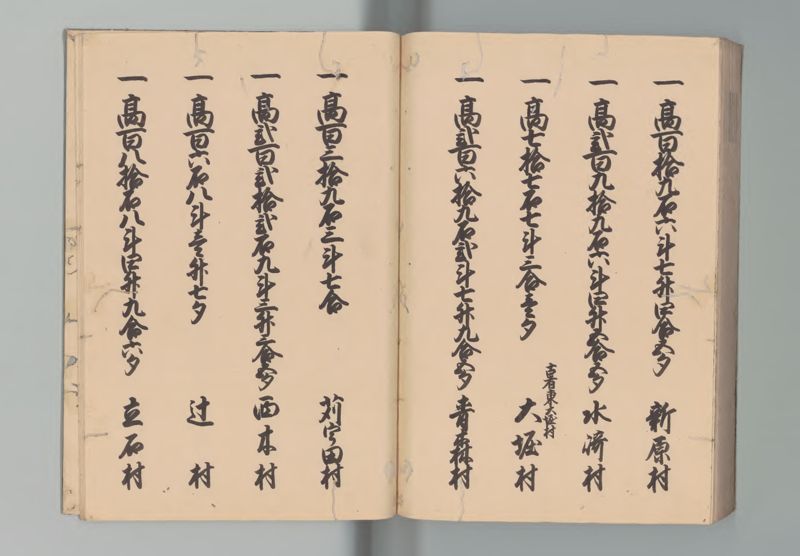 一 高百拾九石六斗七升四合五夕 新原村
一 高弐百九拾九石六斗四升五合五夕 水済村
一 高七拾七石七斗三合壱夕 大堀村
古者東大堀村
一 高弐百六拾九石弐斗七升九合五夕 青森村
一 高百三拾九石三斗七合 苅宇田村
一 高弐百弐拾弐石九斗三升三合五夕 西本村
一 高百六石八斗壱升七夕 辻村
一 高百八拾石八斗四升九合六夕 立石村